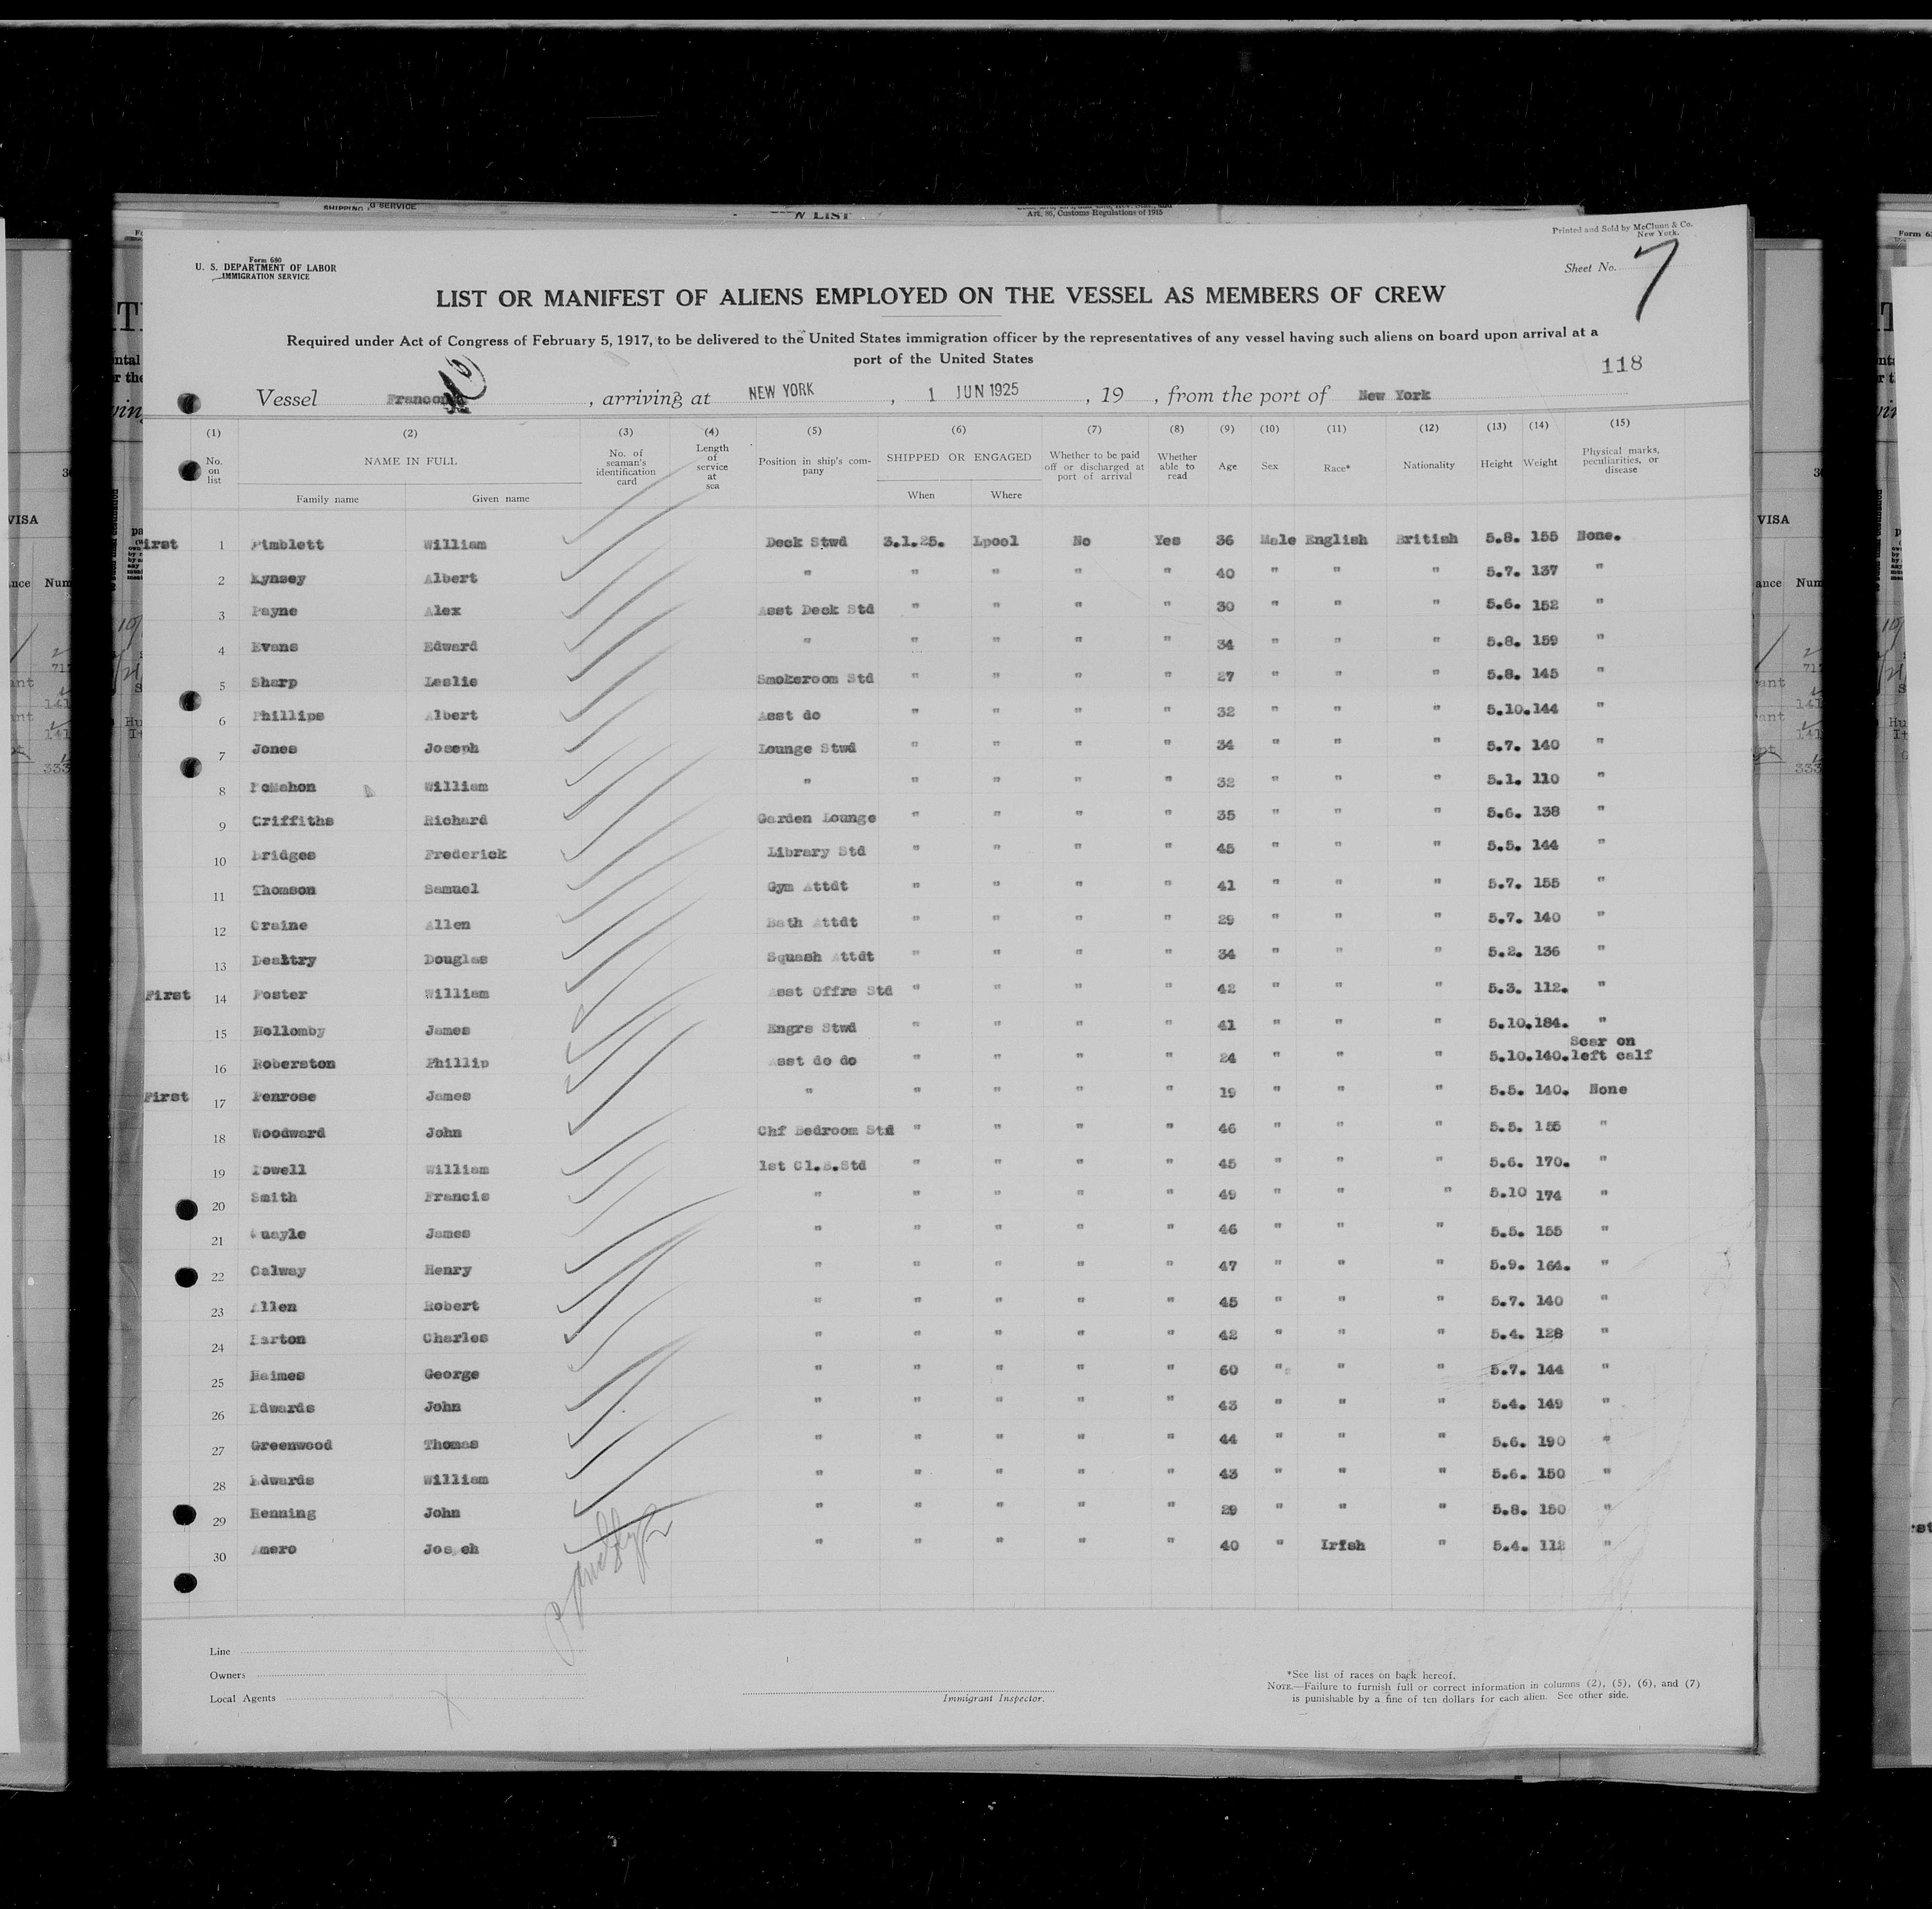 SHIPPING SERVICE
W LIST
Art. 86, Customs Regulations of 1915
Printed and Sold by McClunn & Co.
New York.
Form 680
U. S. DEPARTMENT OF LABOR
IMMIGRATION SERVICE
Sheet No. 7
LIST OR MANIFEST OF ALIENS EMPLOYED ON THE VESSEL AS MEMBERS OF CREW
Required under Act of Congress of February 5, 1917, to be delivered to the United States immigration officer by the representatives of any vessel having such aliens on board upon arrival at a
port of the United States
118
Vessel Franconia, arriving at NEW YORK, 1 JUN 1925, 19 , from the port of New York
(1) (2) (3) (4) (5) (6) (7) (8) (9) (10) (11) (12) (13) (14) (15)
No. on list NAME IN FULL Family name Given name No. of seaman's identification card Length of service at sea Position in ship's company SHIPPED OR ENGAGED When Where Whether to be paid off or discharged at port of arrival Whether able to read Age Sex Race* Nationality Height Weight Physical marks, peculiarities, or disease
First 1 Pimblett William Deck Stwd 3.1.25. Lpool No Yes 36 Male English British 5.8. 155 None.
2 Kynsey Albert " " " " " 40 " " " 5.7. 137 "
3 Payne Alex Asst Deck Std " " " " 30 " " " 5.6. 152 "
4 Evans Edward " " " " " 34 " " " 5.8. 159 "
5 Sharp Leslie Smokeroom Std " " " " 27 " " " 5.8. 145 "
6 Phillips Albert Asst do " " " " 32 " " " 5.10. 144 "
7 Jones Joseph Lounge Stwd " " " " 34 " " " 5.7. 140 "
8 McMahon William " " " " " 32 " " " 5.1. 110 "
9 Griffiths Richard Garden Lounge " " " " 35 " " " 5.6. 138 "
10 Bridges Frederick Library Std " " " " 45 " " " 5.5. 144 "
11 Thomson Samuel Gym Attdt " " " " 41 " " " 5.7. 155 "
12 Craine Allen Bath Attdt " " " " 29 " " " 5.7. 140 "
13 Dealtry Douglas Squash Attdt " " " " 34 " " " 5.2. 136 "
First 14 Foster William Asst Offrs Std " " " " 42 " " " 5.3. 112. "
15 Hollomby James Engrs Stwd " " " " 41 " " " 5.10. 184. "
16 Roberston Phillip Asst do do " " " " 24 " " " 5.10. 140. Scar on left calf
First 17 Penrose James " " " " " 19 " " " 5.5. 140. None
18 Woodward John Chf Bedroom Std " " " " 46 " " " 5.5. 155 "
19 Powell William 1st Cl.B.Std " " " " 45 " " " 5.6. 170. "
20 Smith Francis " " " " " 49 " " " 5.10 174 "
21 Quayle James " " " " " 46 " " " 5.5. 155 "
22 Galway Henry " " " " " 47 " " " 5.9. 164. "
23 Allen Robert " " " " " 45 " " " 5.7. 140 "
24 Barton Charles " " " " " 42 " " " 5.4. 128 "
25 Haimes George " " " " " 60 " " " 5.7. 144 "
26 Edwards John " " " " " 43 " " " 5.4. 149 "
27 Greenwood Thomas " " " " " 44 " " " 5.6. 190 "
28 Edwards William " " " " " 43 " " " 5.6. 150 "
29 Henning John " " " " " 29 " " " 5.8. 150 "
30 Amero Joseph " " " " " 40 " Irish " 5.4. 112 "
Line
Owners
Local Agents
Immigrant Inspector.
*See list of races on back hereof.
NOTE.—Failure to furnish full or correct information in columns (2), (5), (6), and (7)
is punishable by a fine of ten dollars for each alien. See other side.